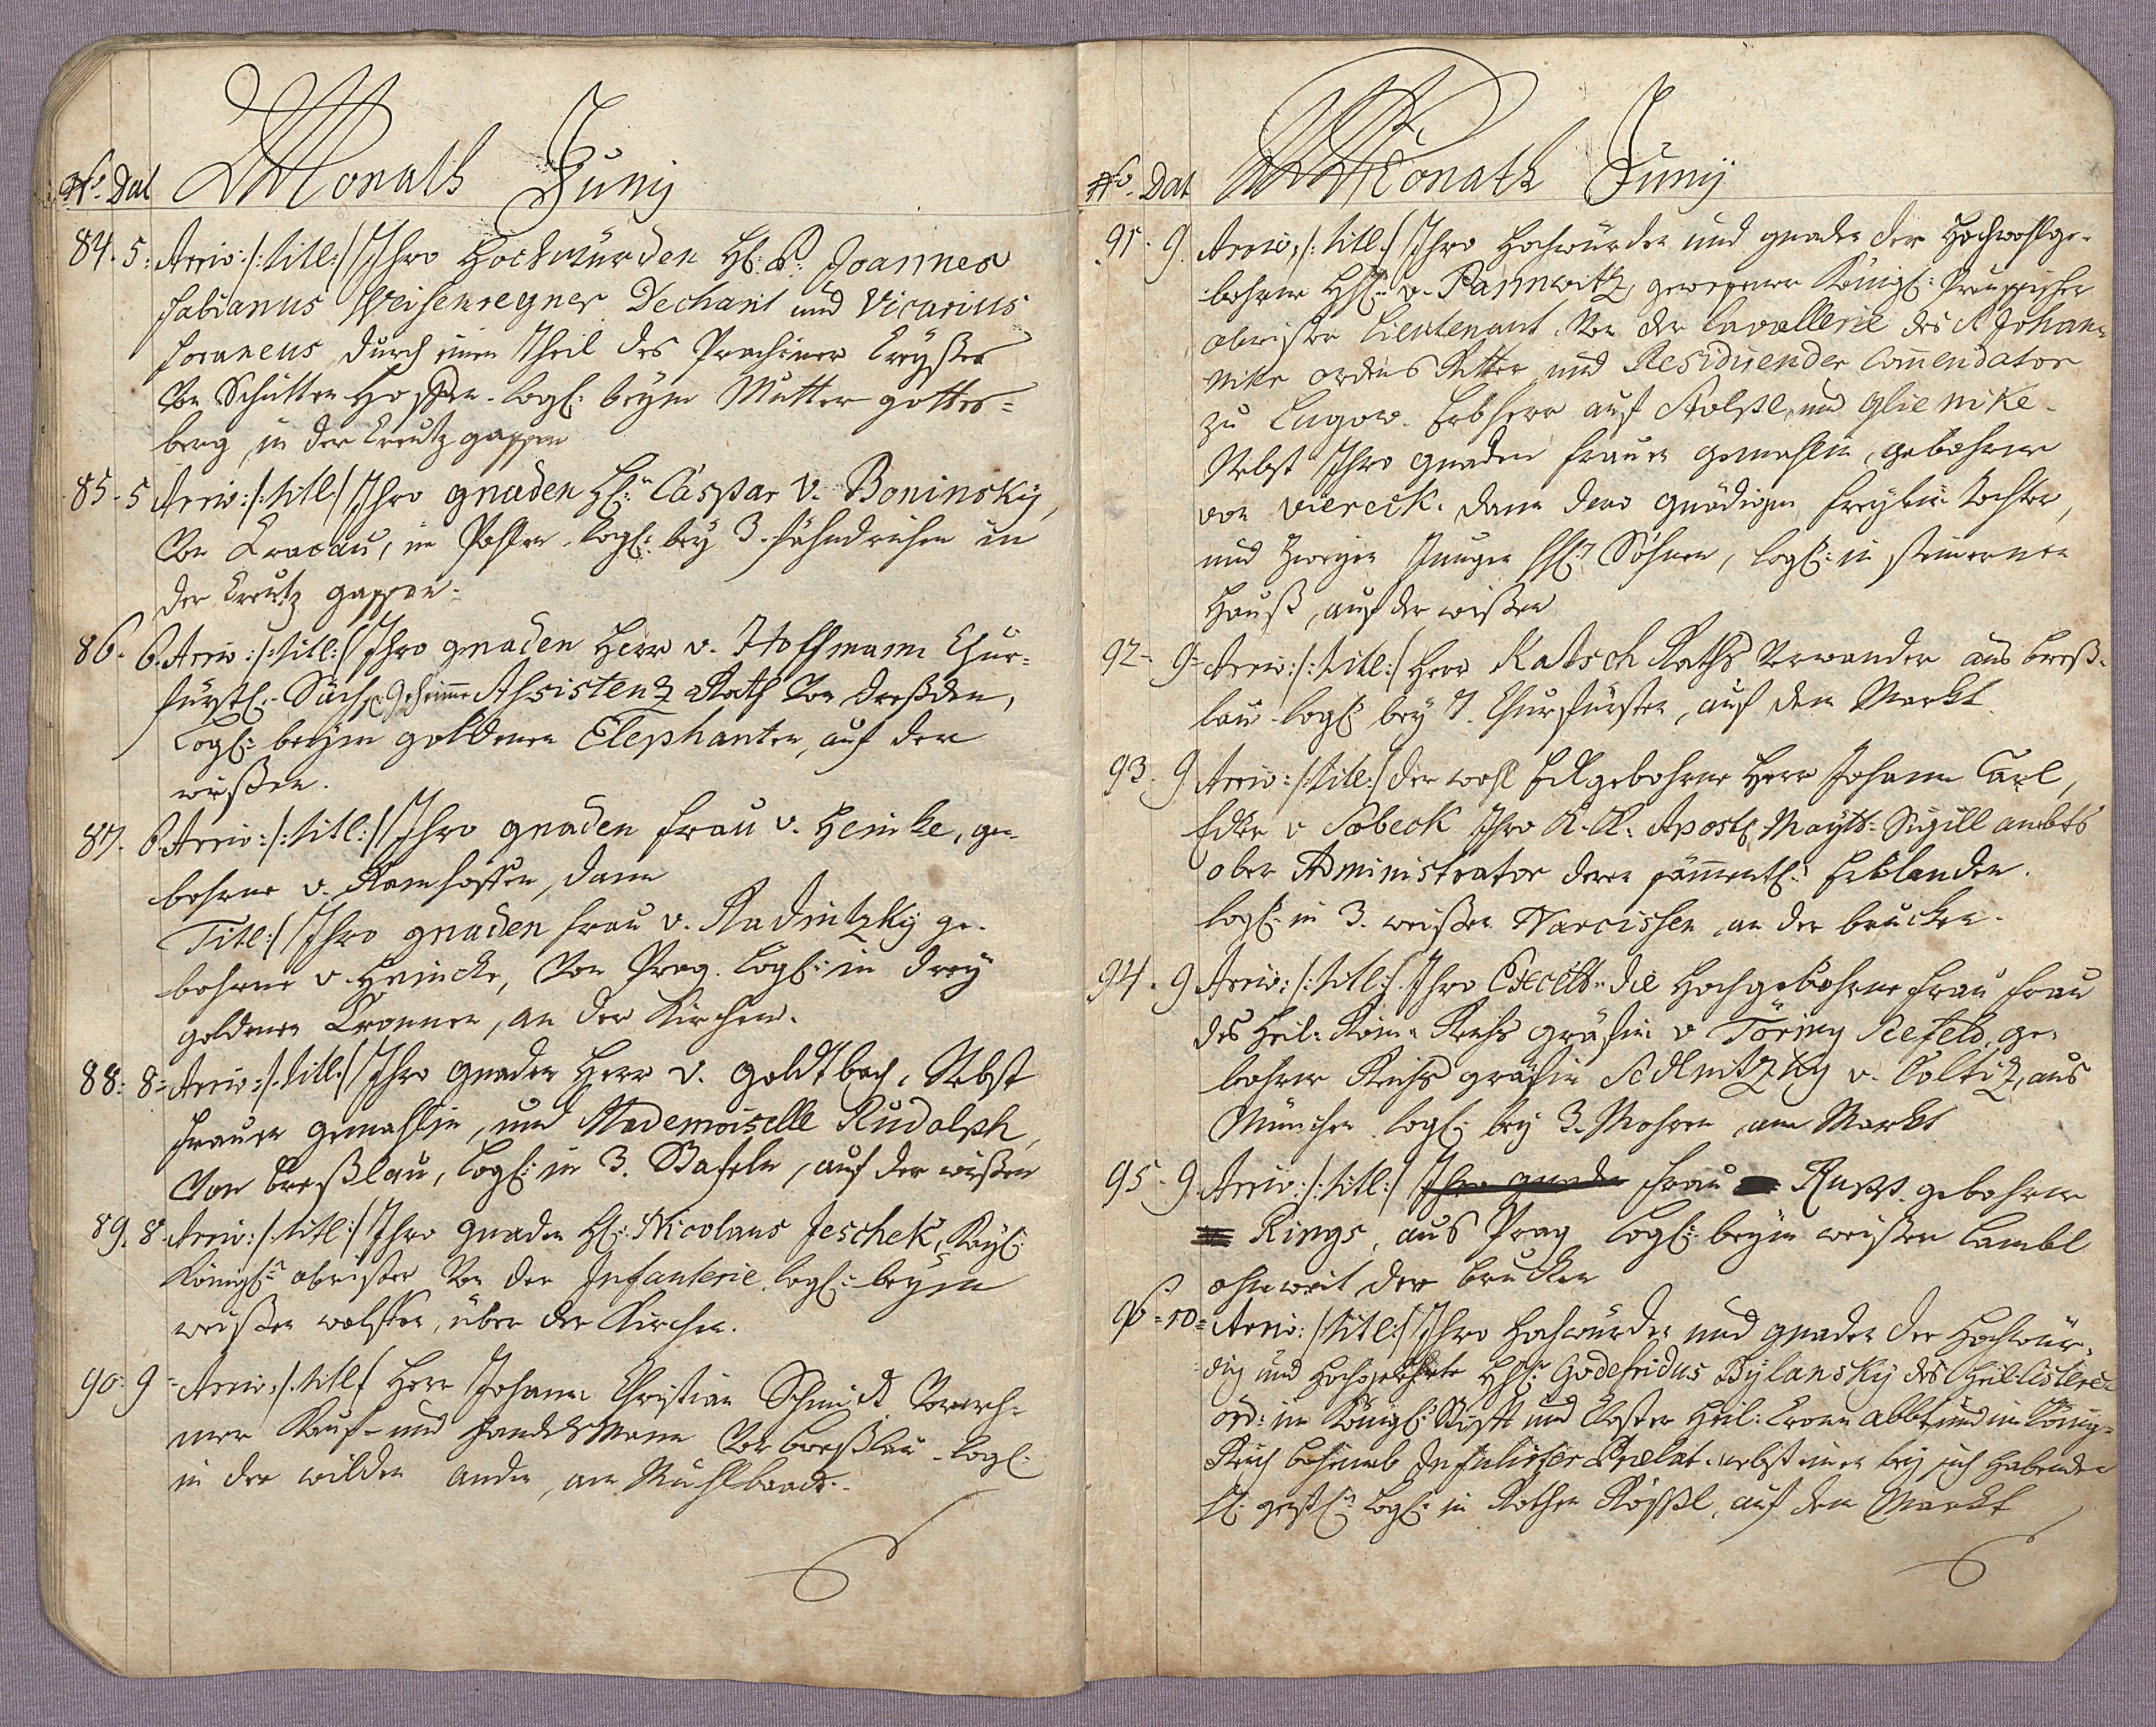 No. Dat Monath Juny
84. 5. Arriv: /: titl: / Ihro Hochwürden H: P: Joannes
Fabianus Weisenregner Dechant und Vicarius
foraneus durch einen Theil des Prachiner Creyßes
Von Schütten Hoffen. Logl: beym Mutter gottes=
berg, in der Creutz gassen
85. 5 Arriv: /: titl: / Ihro gnaden H: Caspar v. Boninsky,
Von Cracau, in Pohlen. Logl: bey 3. fähndrichen in
der Creutz gassen.
86. 6. Arriv: /: titl: / Ihro gnaden Herr v. Hoffmann Chur=
fürstl: Sächs: Geheimme Assistenz Rath Von Dreßden,
Logl: beym goldenen Elephanten, auf der
wießen.
87. 6. Arriv: /: titl: / Ihro gnaden frau v. Heinke, ge=
bohrne v. Ramhoffen, dann
Titl: / Ihro gnaden frau v. Radnitzky ge=
bohrne v. Heincke, Von Prag. Logl: in drey
goldenen Cronnen, an der Kirchen.
88. 8. Arriv: /: titl: / Ihro gnaden Herr v. Goldtbach, Nebst
frauen gemahlin, und Mademoiselle Rudolph,
Von Breßlau, Logl: in 3. Stafeln, auf der wießen
89. 8. Arriv: /: titl: / Ihro gnaden H: Nicolaus Jeschek, Kayl:
Königl: obrister Von der Infanterie. Logl: beym
weißen wolffen, über der Kirchen.
90. 9 Arriv: /: titl: / Herr Johann Christian Schmidt Vorneh=
mer Kauf- und Handelsmann Von Breßlau. Logl:
in der wilden anden, am Mühlbaade.
No. Dat Monath Juny
91. 9. Arriv: /: titl: / Ihro Hochwürden und gnaden der Hochwohlge=
bohrne H: v. Pannwitz, gewesener Königl: Preussischer
obrister Lieutenant Von der Cavallerie des S. Johan=
niter ordens Ritter und Residirender Com̄endator
zu Lugow. Erbherr auf und Glienike.
Nebst Ihro gnaden frauen gemahlin, gebohrne
von Viereck. dann dero gnädigen freylein Tochter,
und Zweyen Jungen H: Söhnen, Logl: in steinernen
Hauß, auf der wießen
92. 9. Arriv: /: titl: / Herr Katsch Raths Verwander aus Breß=
lau. Logl: bey 7. Churfürsten, auf dem Markt.
93. 9 Arriv: /: titl: / der wohl Edlgebohrne Herr Johann Carl,
Edler v Sobeck Ihro K. K. Apostl: Maytt: Sigill ambts
ober Administrator deren sämmentl: Erblanden.
Logl: in 3. weißen Narcissen, an der brucken.
94. 9 Arriv: /: titl: / Ihro Excellt: die Hochgebohrne frau frau
des Heil: Röm: Reichs gräfin v Törring Seefeld, ge=
bohrne Reichs gräfin Sedlnitzky v. Coltitz, aus
München. Logl: bey 3. Mohren, am Markt
95. 9 Arriv: /: titl: / Ihro gnaden frau Russ. gebohrne
Rings, aus Prag Logl: beym weißen Lambl
ohnweit der brucken
96. 10. Arriv: /: titl: / Ihro Hochwürden und gnaden der Hochwür=
dig und Hochgelehrte H: Godefridus Bylansky des Heil: Cisterc:
ord: im Königl: Stifft und Closter Heil: Cronn Abbt und im König=
Reich Böheimb Infulirter Prælat. nebst einen bey sich habenden
H: geistl: Logl: in Rothen Rössl, auf dem Markt